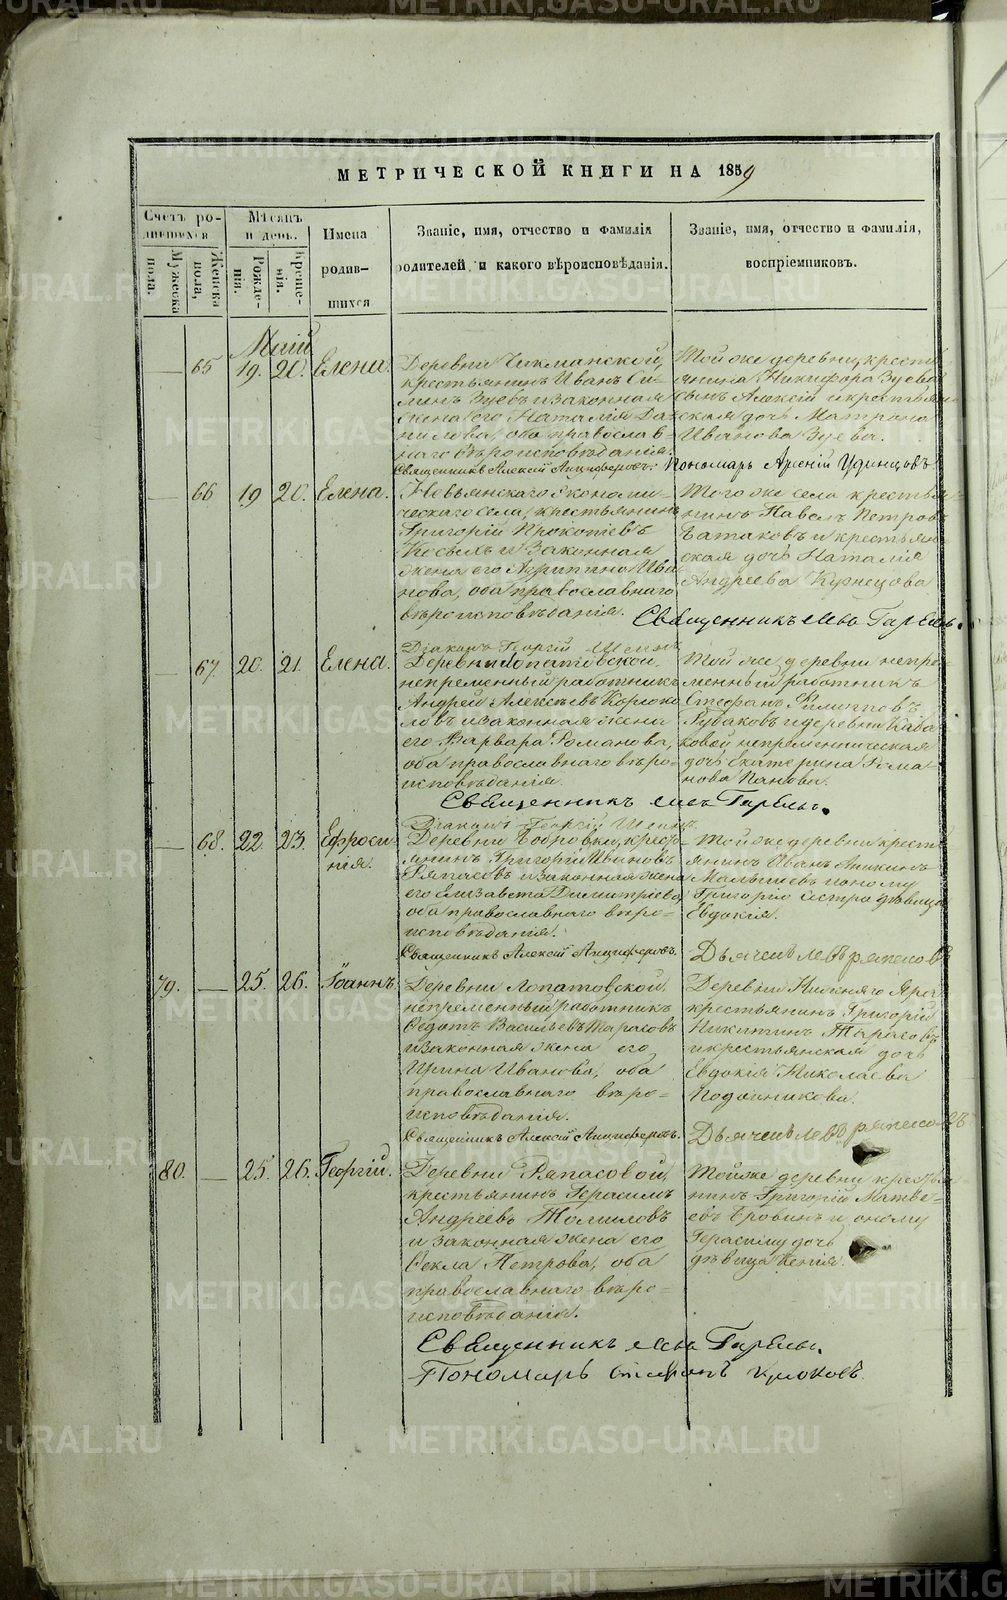 МЕТРИЧЕСКОЙ КНИГИ НА 1859
Счетъ ро-
дившихся
Мужеска
пола.
Женска
пола,
Мѣсяцъ
и день.
Рожде-
нія.
Креще-
нія.
Имена
родив-
шихся
Званіе, имя, отчество и фамилія
родителей, и какого вѣроисповѣданія.
Званіе, имя, отчество и фамилія,
воспріемниковъ.
Маій
65 19. 20. Елена.
Деревни
крестьянинъ Иванъ Си-
минъ Зуевъ и законная
жена его Наталія Да-
нилова, оба православ-
наго вѣроисповѣданія.
Той же деревни, кресть-
янина Никифора Зуева
сынъ Алексій и крестьян-
ская дочь Матрона
Иванова Зуева.
Священникъ Алексій Анциферовъ. Пономарь Арсеній Удинцовъ
66 19 20. Елена.
Невьянскаго экономи-
ческаго села, крестьянинъ
Григорій Прокопьевъ
и законная
жена его Агрипина Ива-
нова, оба православнаго
вѣроисповѣданія.
Того же села крестья-
нинъ Павелъ Петровъ
и крестьян-
ская дочь Наталія
Андреева Кузнецова
Священникъ
Діаконъ Георгій
67. 20. 21. Елена.
Деревни Лопатовской,
непременный работникъ
Андрей Алексѣевъ
и законная жена
его Варвара Романова,
оба православнаго вѣро-
исповѣданія.
Той же деревни непре-
менный работникъ
Стефанъ Филипповъ
Губаковъ и деревни Каба-
ковой непременническая
дочь Екатерина Рома-
нова Панова.
Священникъ
Діаконъ Георгій
68. 22. 23. Ефроси-
нія.
Деревни Бобровки, крест-
янинъ Григорій Ивановъ
Ряпасовъ и законная жена
его Елизавета Димитріева
оба православнаго вѣро-
исповѣданія.
Той же деревни кресть-
янинъ Иванъ Аникинъ
Малышевъ и оному
Григорію сестра дѣвица
Евдокія.
Священникъ Алексій Анциферовъ. Дьячекъ
79. 25. 26. Іоаннъ.
Деревни Лопатовской
непременный работникъ
Ѳедотъ Васильевъ Тарасовъ
и законная жена его
Ирина Иванова, оба
православнаго вѣро-
исповѣданія.
Деревни Нижняго Яра
крестьянинъ Григорій
Никитинъ Тарасовъ
и крестьянская дочь
Евдокія Николаева
Подойникова.
Священникъ Алексій Анциферовъ. Дьячекъ
80. 25. 26. Георгій.
Деревни Ряпасовой,
крестьянинъ Герасимъ
Андреевъ Томиловъ
и законная жена его
Ѳекла Петрова, оба
православнаго вѣро-
исповѣданія.
Той же деревни крестья-
нинъ Григорій Матвѣ-
евъ и оному
Герасиму дочь
дѣвица Ксенія.
Священникъ
Пономарь Стефанъ Крюковъ.
METRIKI.GASO-URAL.RU